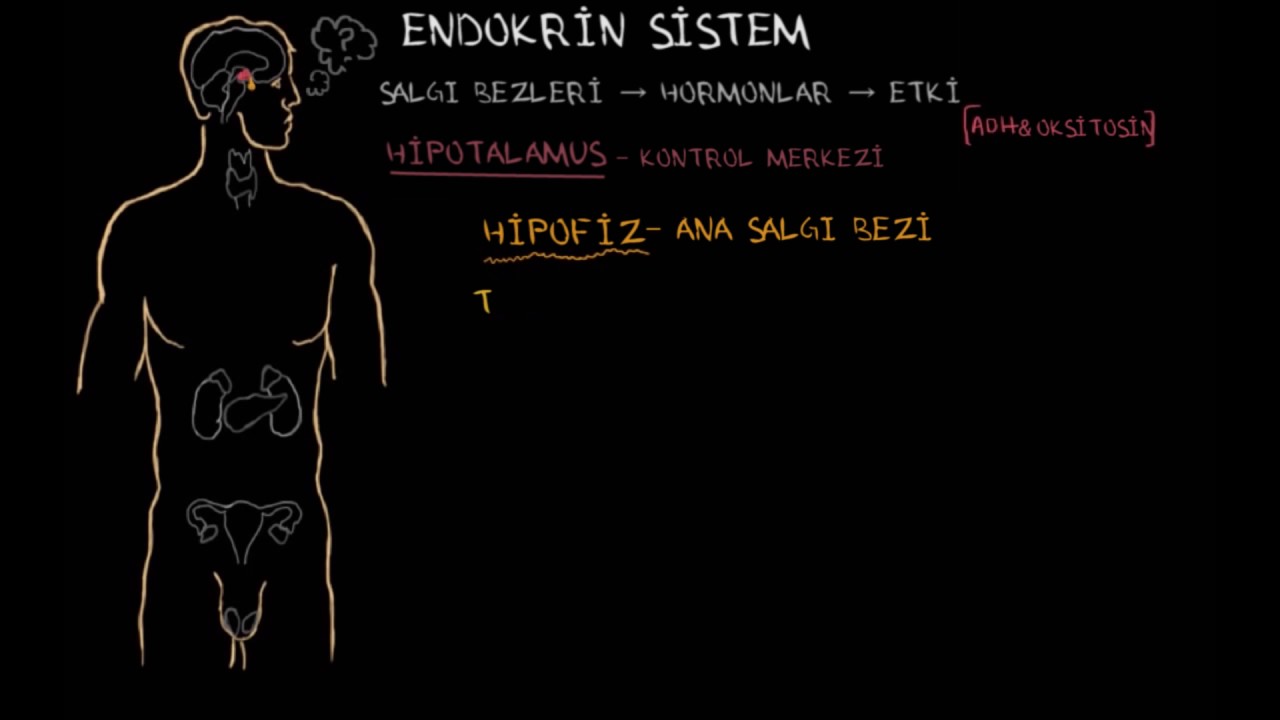 ?
ENDOKRİN SİSTEM
SALGI BEZLERİ → HORMONLAR → ETKİ
[ADH & OKSİTOSİN]
HİPOTALAMUS - KONTROL MERKEZİ
HİPOFİZ - ANA SALGI BEZİ
T